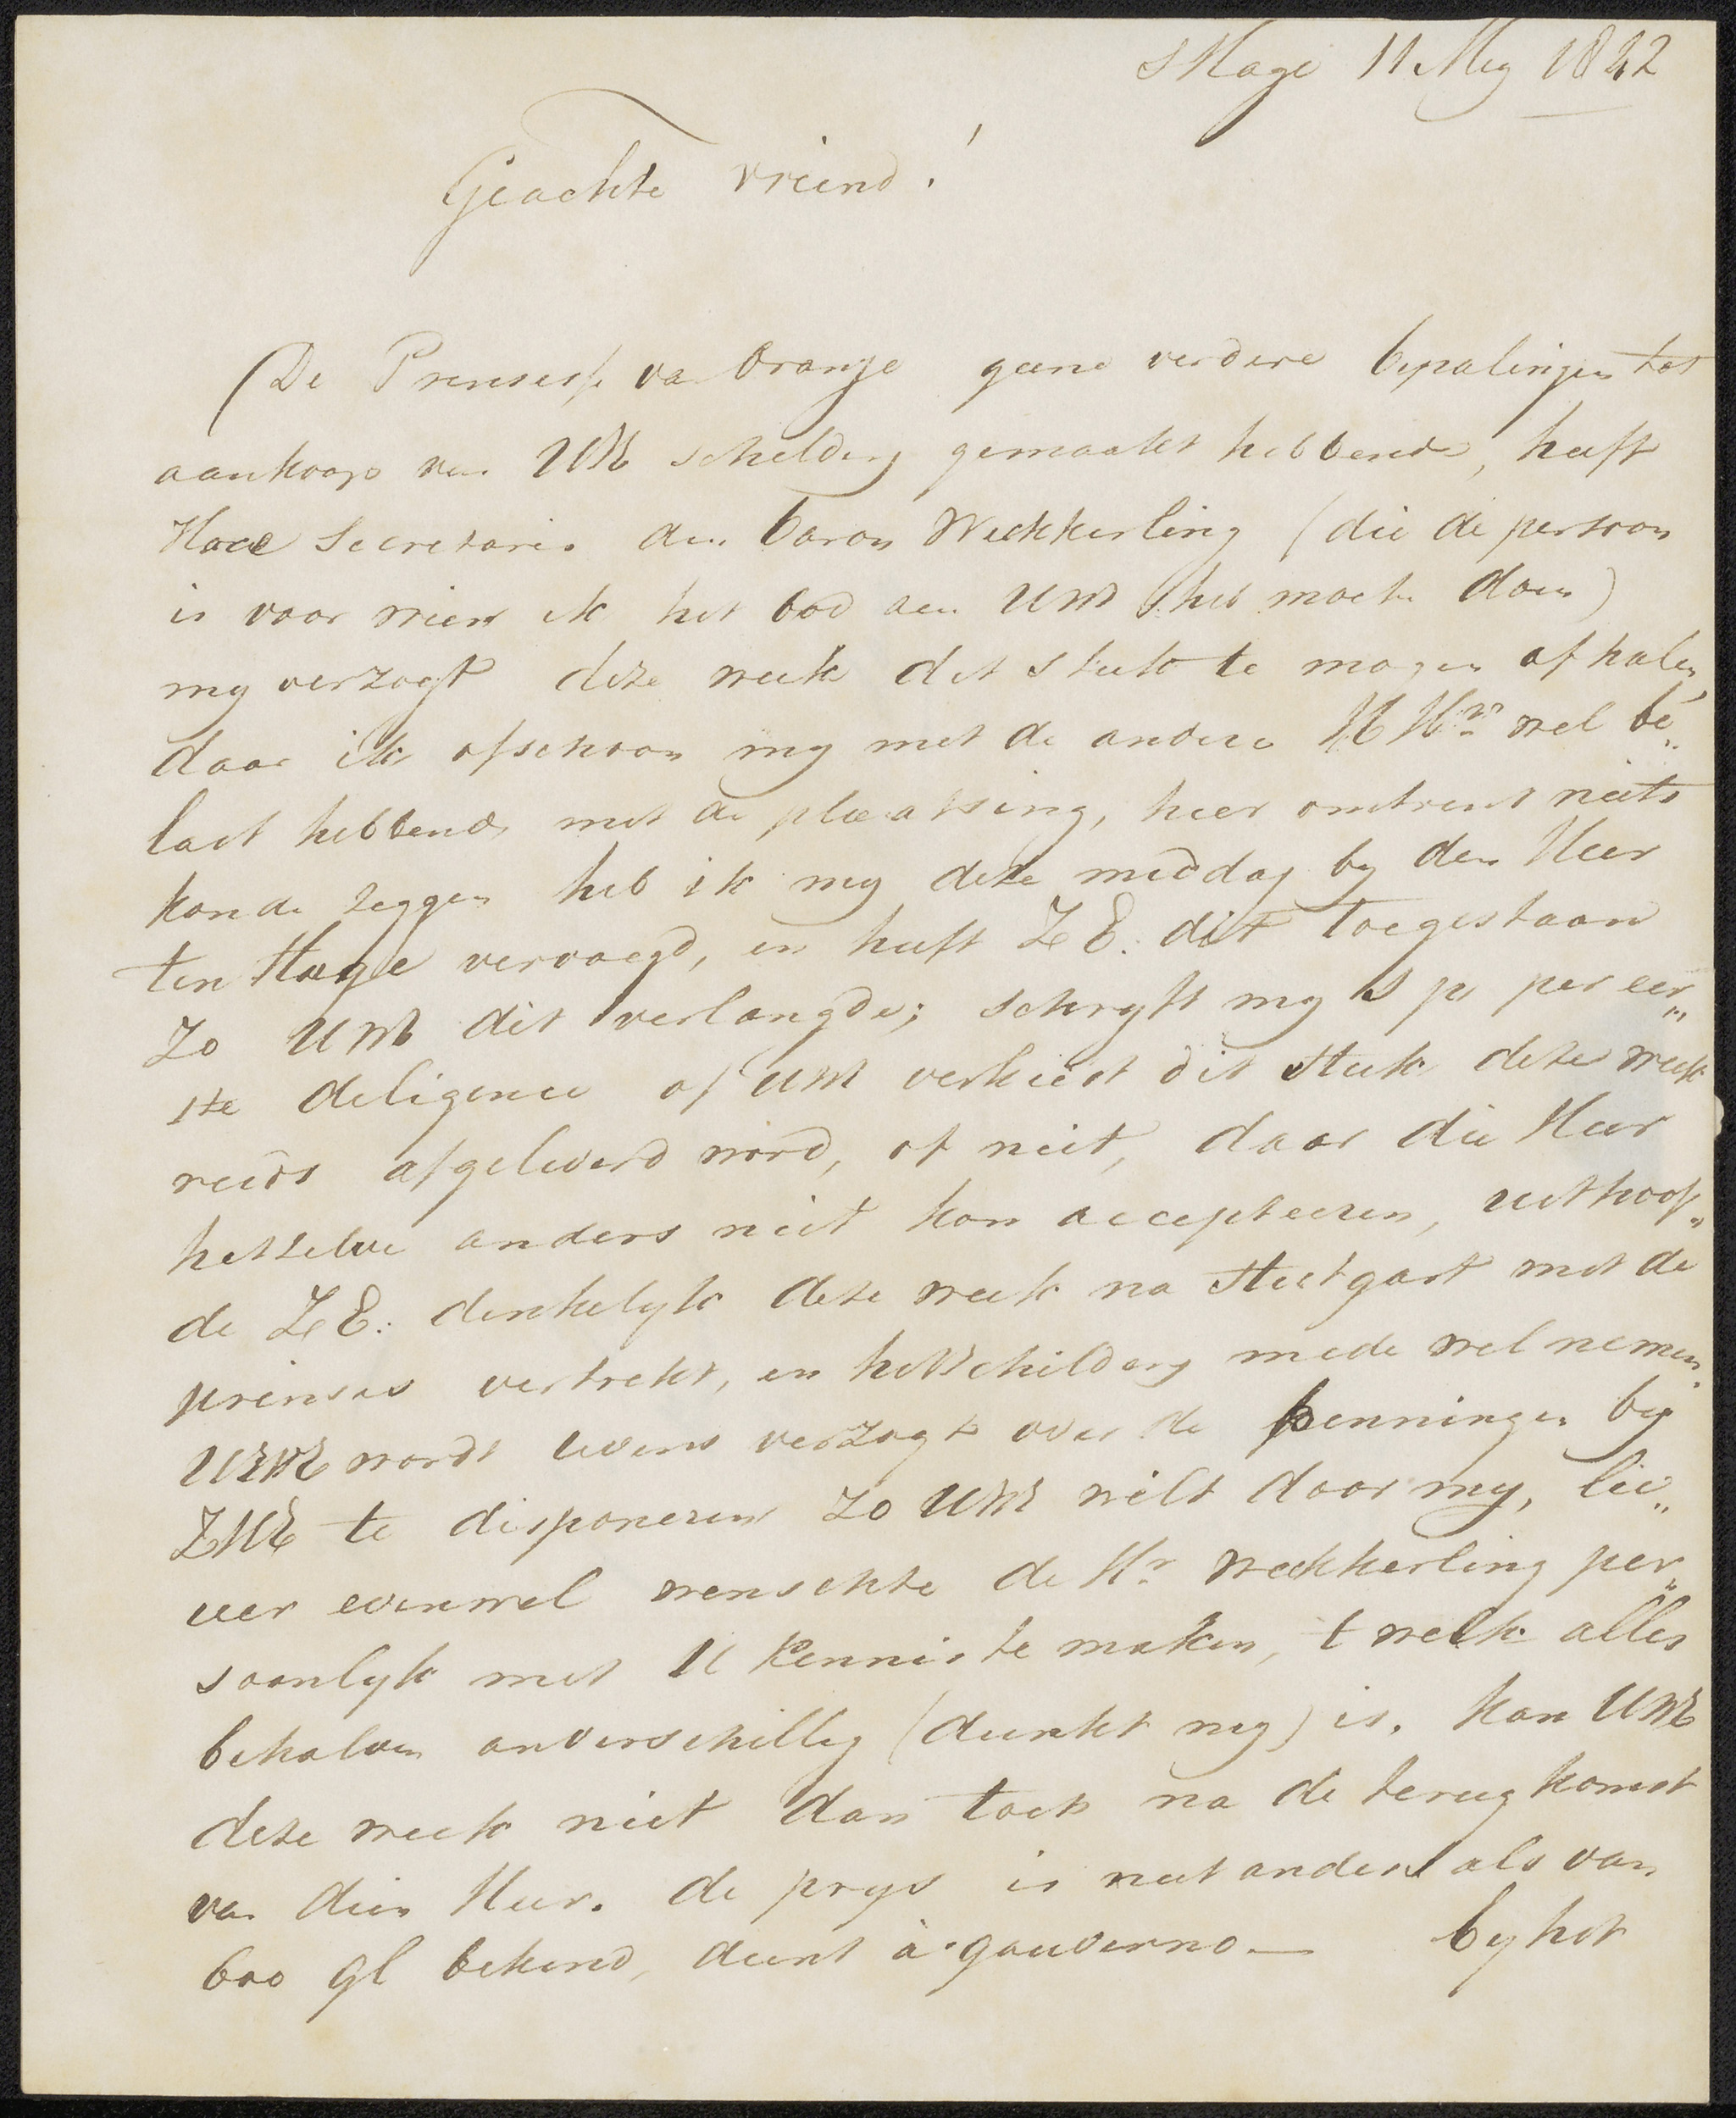 s Hage 11 Mey 1842
Geachte vriend!
De Prinsesse van Oranje geene verdere bepalingen tot
aankoop van UW schildery gemaakt hebbende, heeft
Hare Secretaris den baron Weckherling (die de persoon
is voor wien ik het bod aan UW heb moeten doen)
my verzogt deze week dit stuk te mogen afhalen,
daar ik ofschoon my met de andere HHrn wel be„
last hebbende met de plaatsing, hier omtrent niets
konde zeggen heb ik my deze middag by den Heer
ten Hage vervoegd, en heeft ZE: dit toegestaan
zo UW dit verlangde; schryft my s p per eer„
ste deligence of UW verkiest dit stuk deze week
reeds afgeleverd word, of niet, daar die Heer
hetzelve anders niet kan accepteeren, uithoof„
de ZE: denkelyk deze week na Stutgart met de
prinses vertrekt, en het schildery mede wel nemen.
UEW wordt tevens verzogt over de penningen by
ZWE te disponeren zo UW wilt door my, lie„
ver evenwel wenschte de Hr Weckherling per„
soonlyk met U kennis te maken, t welk alles
behalven onverschillig (dunkt my) is. kan UW
deze week niet dan toch na de terugkomst
van dien Heer. de prys is niet anders als van
600 gl bekend, dient a gouverno — by het